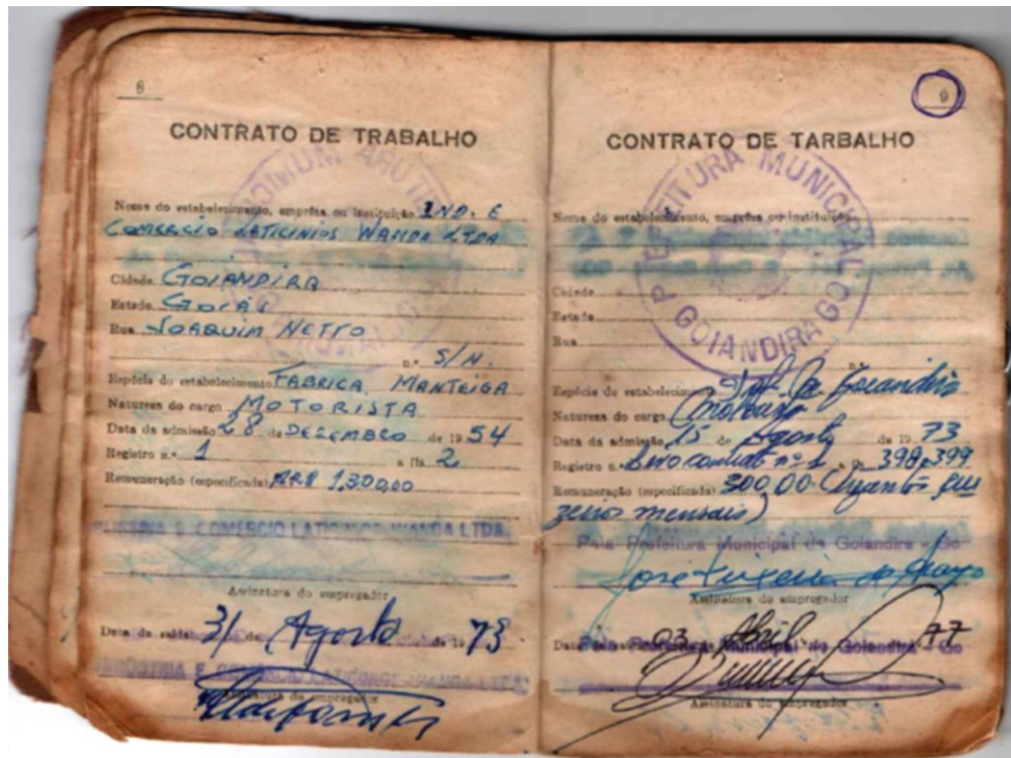 8
CONTRATO DE TRABALHO
Nome do estabelecimento, emprêsa ou instituição IND. E
COMERCIO LATICINIOS WANDA LTDA
Cidade GOIANDIRA
Estado GOIÁS
Rua JOAQUIM NETTO
n.º S/N.
Espécie do estabelecimento FABRICA MANTEIGA
Natureza do cargo MOTORISTA
Data da admissão 28 de DEZEMBRO de 1954
Registro n.º 1 a fls. 2
Remuneração (especificada) 1.300,00
E COMERCIO LATICINIOS WANDA LTDA.
Assinatura do empregador
Data da saída 31 de Agosto de 1973
INDÚSTRIA E COMERCIO WANDA LTDA
Assinatura do empregador
9
CONTRATO DE TARBALHO
PREFEITURA MUNICIPAL
GOIANDIRA GO
Nome do estabelecimento, emprêsa ou instituição
Cidade
Estado
Rua
n.º
Espécie do estabelecimento Pref. de Goiandira
Natureza do cargo Motorista
Data da admissão 15 de Agosto de 1973
Registro n.º Livro contrat nº 1 a fls. 398,399
Remuneração (especificada) 500,00
zeiros mensais)
Pela Prefeitura Municipal de Goiandira - Go
José Teixeira de
Assinatura do empregador
Data da saída 03 Abril 77
Pela Prefeitura Municipal de Goiandira - Go
Assinatura do empregador